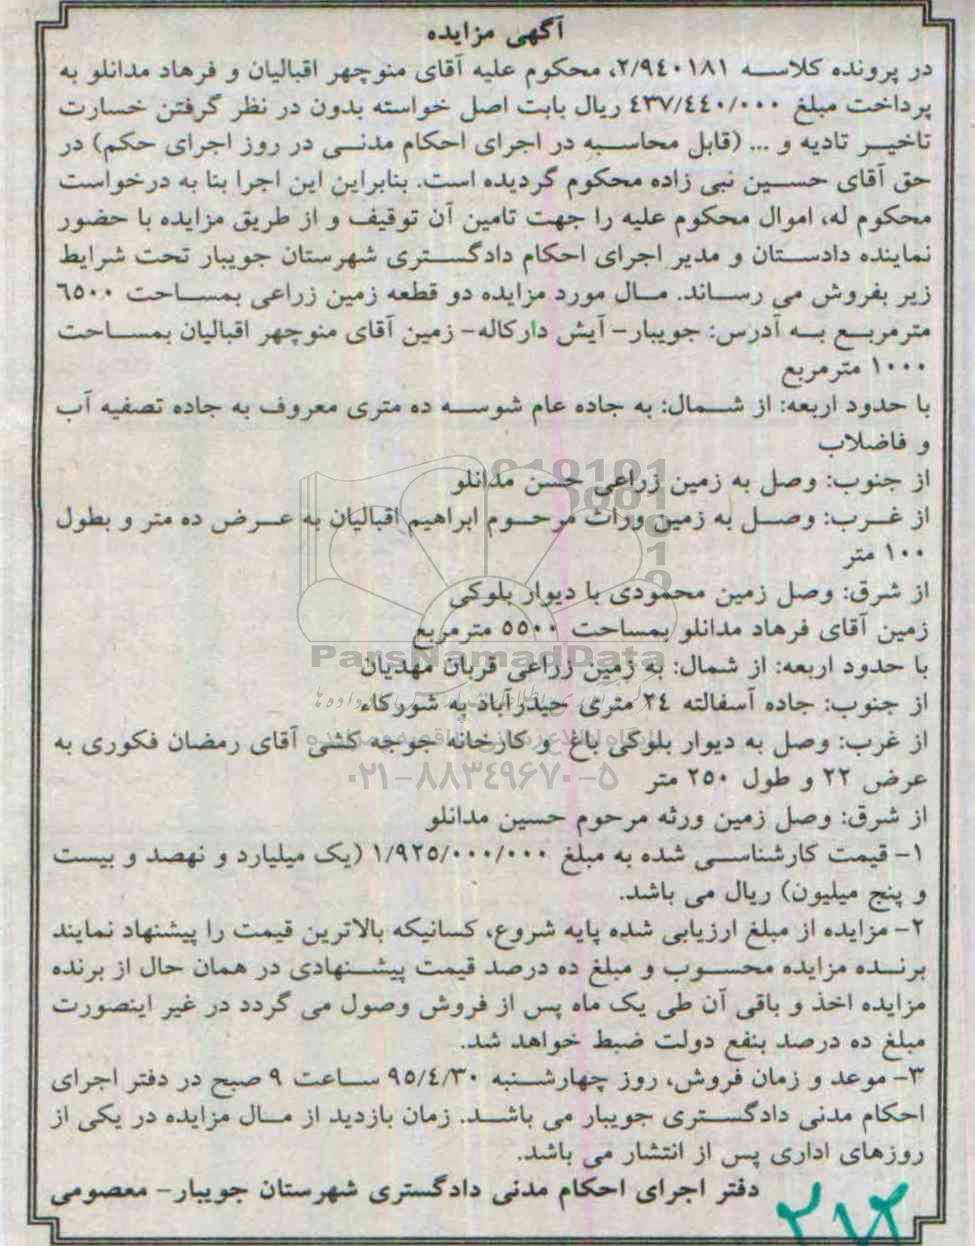 آگهی مزایده
در پرونده کلاسه ۲/۹٤۰۱۸۱، محکوم علیه آقای منوچهر اقبالیان و فرهاد مدانلو به
پرداخت مبلغ ٤۳۷/٤٤۰/۰۰۰ ریال بابت اصل خواسته بدون در نظر گرفتن خسارت
تاخیر تادیه و ... (قابل محاسبه در اجرای احکام مدنی در روز اجرای حکم) در
حق آقای حسین نبی زاده محکوم گردیده است. بنابراین این اجرا بنا به درخواست
محکوم له، اموال محکوم علیه را جهت تامین آن توقیف و از طریق مزایده با حضور
نماینده دادستان و مدیر اجرای احکام دادگستری شهرستان جویبار تحت شرایط
زیر بفروش می رساند. مال مورد مزایده دو قطعه زمین زراعی بمساحت ٦٥۰۰
مترمربع به آدرس: جویبار- آیش دارکاله- زمین آقای منوچهر اقبالیان بمساحت
۱۰۰۰ مترمربع
با حدود اربعه: از شمال: به جاده عام شوسه ده متری معروف به جاده تصفیه آب
و فاضلاب
از جنوب: وصل به زمین زراعی حسن مدانلو
از غرب: وصل به زمین وراث مرحوم ابراهیم اقبالیان به عرض ده متر و بطول
۱۰۰ متر
از شرق: وصل زمین محمودی با دیوار بلوکی
زمین آقای فرهاد مدانلو بمساحت ٥٥۰۰ مترمربع
ParsNamadData
با حدود اربعه: از شمال: به زمین زراعی قربان مهدیان
از جنوب: جاده آسفالته ۲٤ متری حیدرآباد به شورکاء
از غرب: وصل به دیوار بلوکی باغ و کارخانه جوجه کشی آقای رمضان فکوری به
عرض ۲۲ و طول ۲٥۰ متر
۰۲۱-۸۸۳۴۹۶۷۰-۵
از شرق: وصل زمین ورثه مرحوم حسین مدانلو
۱- قیمت کارشناسی شده به مبلغ ۱/۹۲٥/۰۰۰/۰۰۰ (یک میلیارد و نهصد و بیست
و پنج میلیون) ریال می باشد.
۲- مزایده از مبلغ ارزیابی شده پایه شروع، کسانیکه بالاترین قیمت را پیشنهاد نمایند
برنده مزایده محسوب و مبلغ ده درصد قیمت پیشنهادی در همان حال از برنده
مزایده اخذ و باقی آن طی یک ماه پس از فروش وصول می گردد در غیر اینصورت
مبلغ ده درصد بنفع دولت ضبط خواهد شد.
۳- موعد و زمان فروش، روز چهارشنبه ۹٥/٤/۳۰ ساعت ۹ صبح در دفتر اجرای
احکام مدنی دادگستری جویبار می باشد. زمان بازدید از مال مزایده در یکی از
روزهای اداری پس از انتشار می باشد.
دفتر اجرای احکام مدنی دادگستری شهرستان جویبار- معصومی